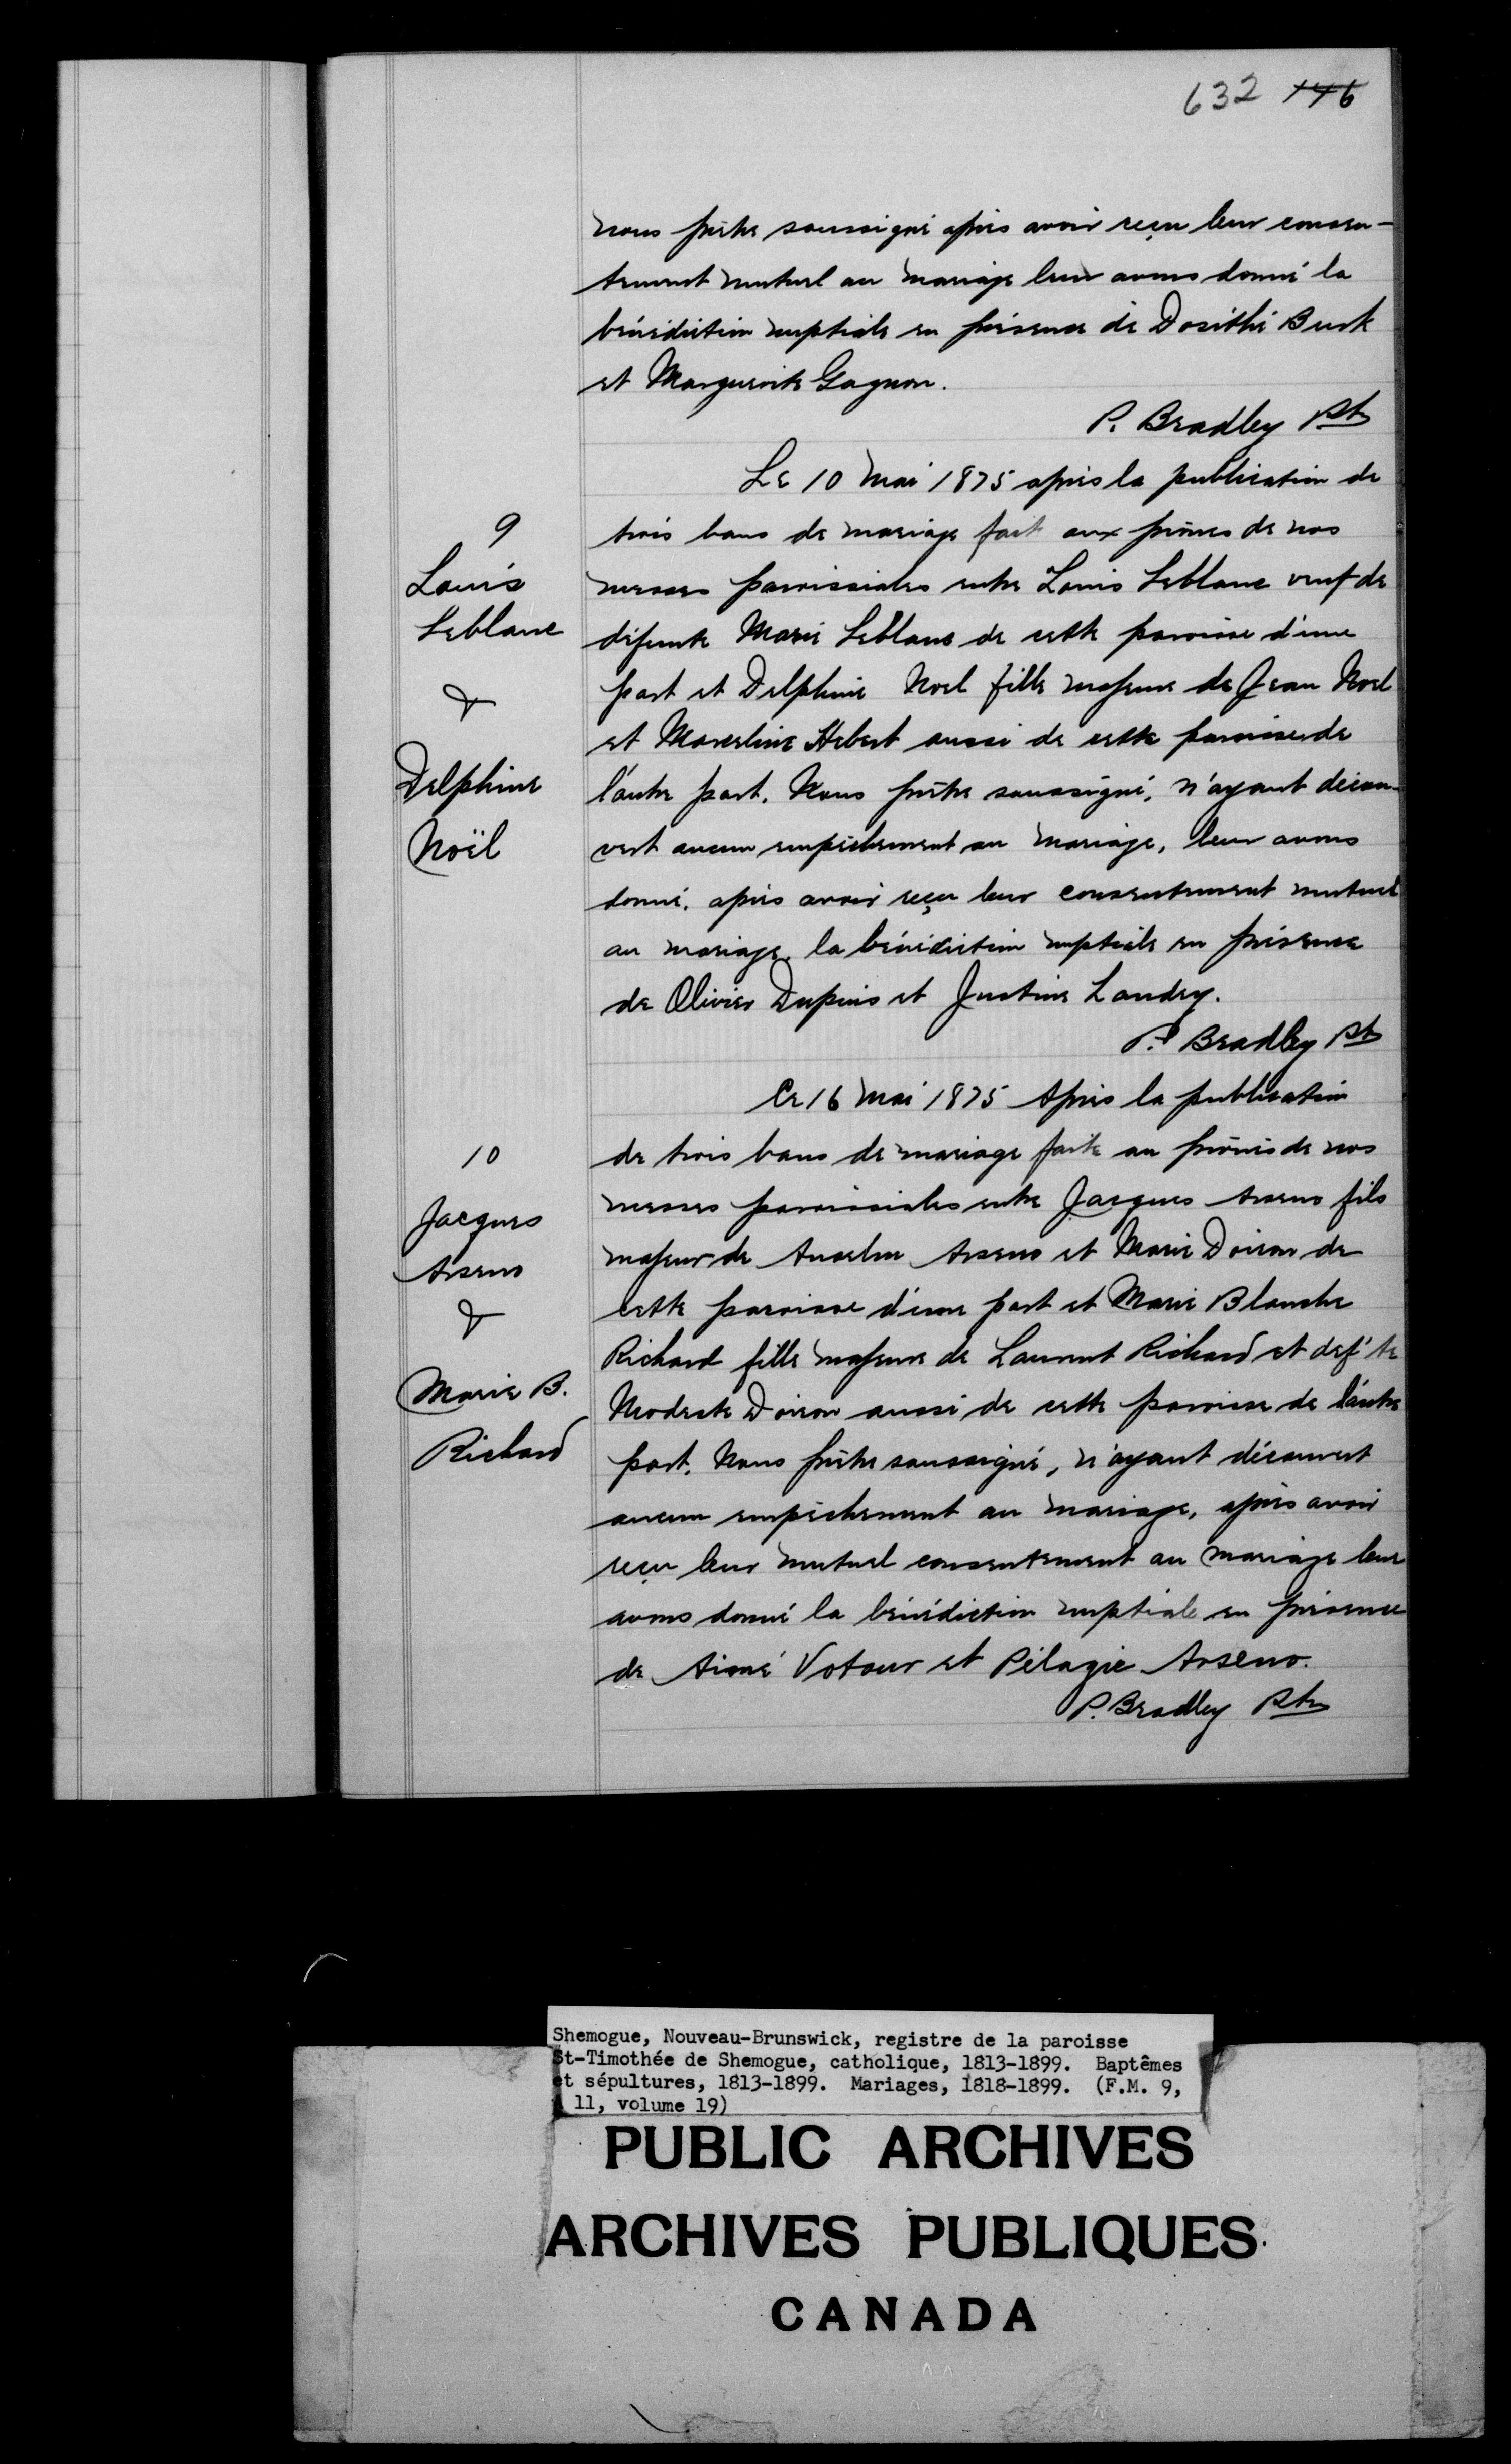 632 146
nous prêtre soussigné après avoir reçu leur consen-
tement mutuel au mariage leur avons donné la
bénédiction nuptiale en présence de Dosithé Burk
et Marguerite Gagnon.
P. Bradley Ptr
Le 10 Mai 1875 après la publication de
9
trois bans de mariage fait aux prônes de nos
Louis
messes paroissiales entre Louis Leblanc veuf de
Leblanc
défunte Marie Leblanc de cette paroisse d'une
&
part et Delphine Noel fille majeure de Jean Noel
et Marceline Hebert aussi de cette paroisse de
Delphine
l'autre part. Nous prêtre soussigné, n'ayant décou-
Noël
vert aucun empêchement au mariage, leur avons
donné, après avoir reçu leur consentement mutuel
au mariage, la bénédiction nuptiale en présence
de Olivier Dupuis et Justine Landry.
P. Bradley Pt
Ce 16 Mai 1875 Après la publication
10
de trois bans de mariage faite au prônes de nos
Jacques
messes paroissiales entre Jacques Arseno fils
Arseno
majeur de Anselm Arseno et Marie Doiron de
&
cette paroisse d'une part et Marie Blanche
Richard fille majeure de Laurent Richard et def'te
Marie B.
Modeste Doiron aussi de cette paroisse de l'autre
Richard
part. Nous prêtre soussigné, n'ayant découvert
aucun empêchement au mariage, après avoir
reçu leur mutuel consentement au mariage leur
avons donné la bénédiction nuptiale en présence
de Aimé Votour et Pélagie Arseno.
P. Bradley Ptr
Shemogue, Nouveau-Brunswick, registre de la paroisse
St-Timothée de Shemogue, catholique, 1813-1899. Baptêmes
et sépultures, 1813-1899. Mariages, 1818-1899. (F.M. 9,
11, volume 19)
PUBLIC ARCHIVES
ARCHIVES PUBLIQUES
CANADA